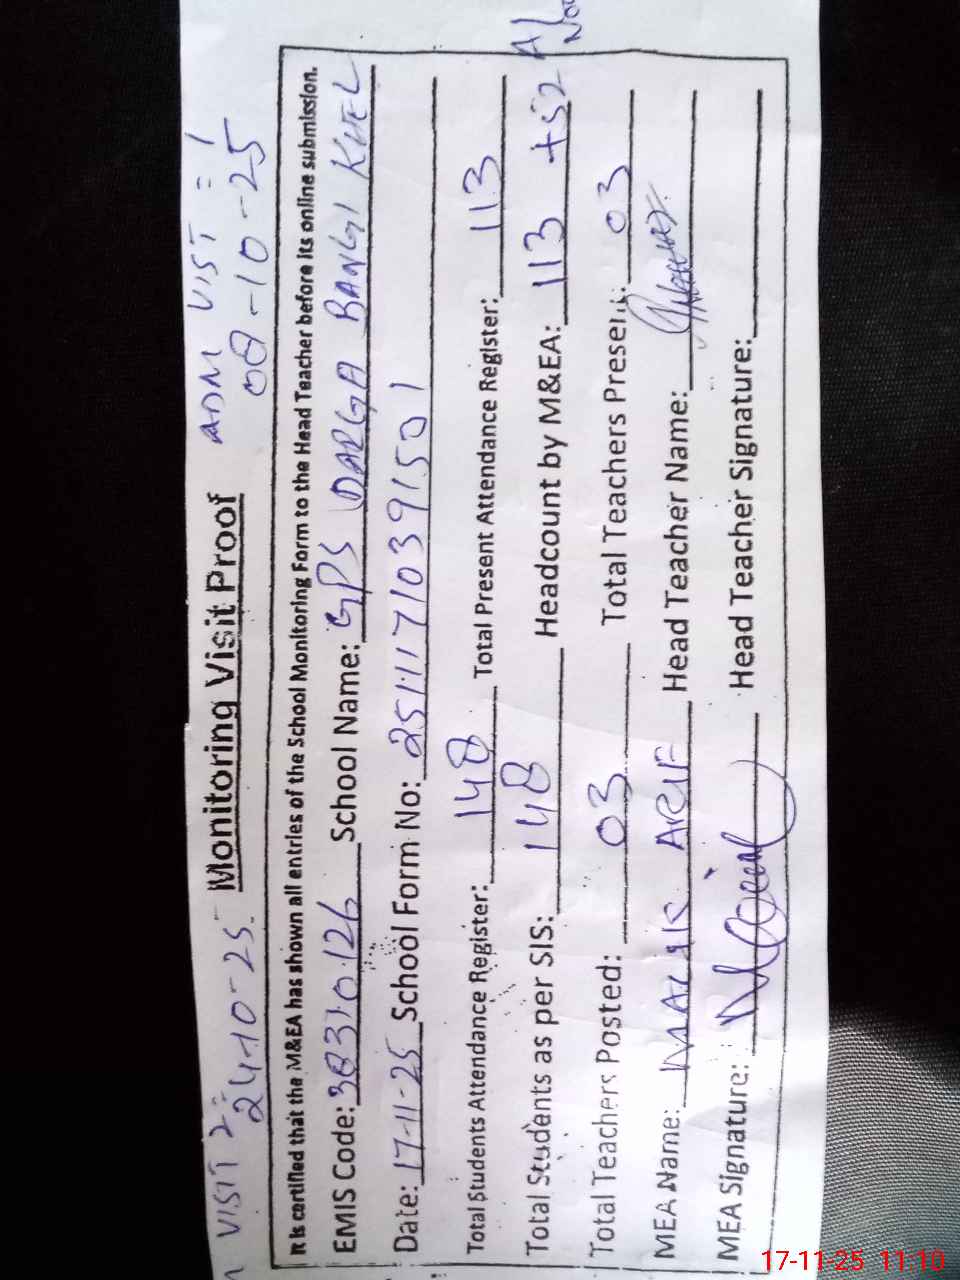 VISIT 2:- ADM VIST = 1
24-10-25. Monitoring Visit Proof 08-10-25
It is certified that the M&EA has shown all entries of the School Monitoring Form to the Head Teacher before its online submission.
EMIS Code: 38310126 School Name: GPS DARGA BANGI KHEL
Date: 17-11-25 School Form No: 25111710391501
Total Students Attendance Register: 148 Total Present Attendance Register: 113
Total Students as per SIS: 148 Headcount by M&EA: 113 +52
Total Teachers Posted: 03 Total Teachers Present: 03
MEA Name: MALIK ARIF Head Teacher Name:
MEA Signature: Head Teacher Signature:
17-11-25 11:10